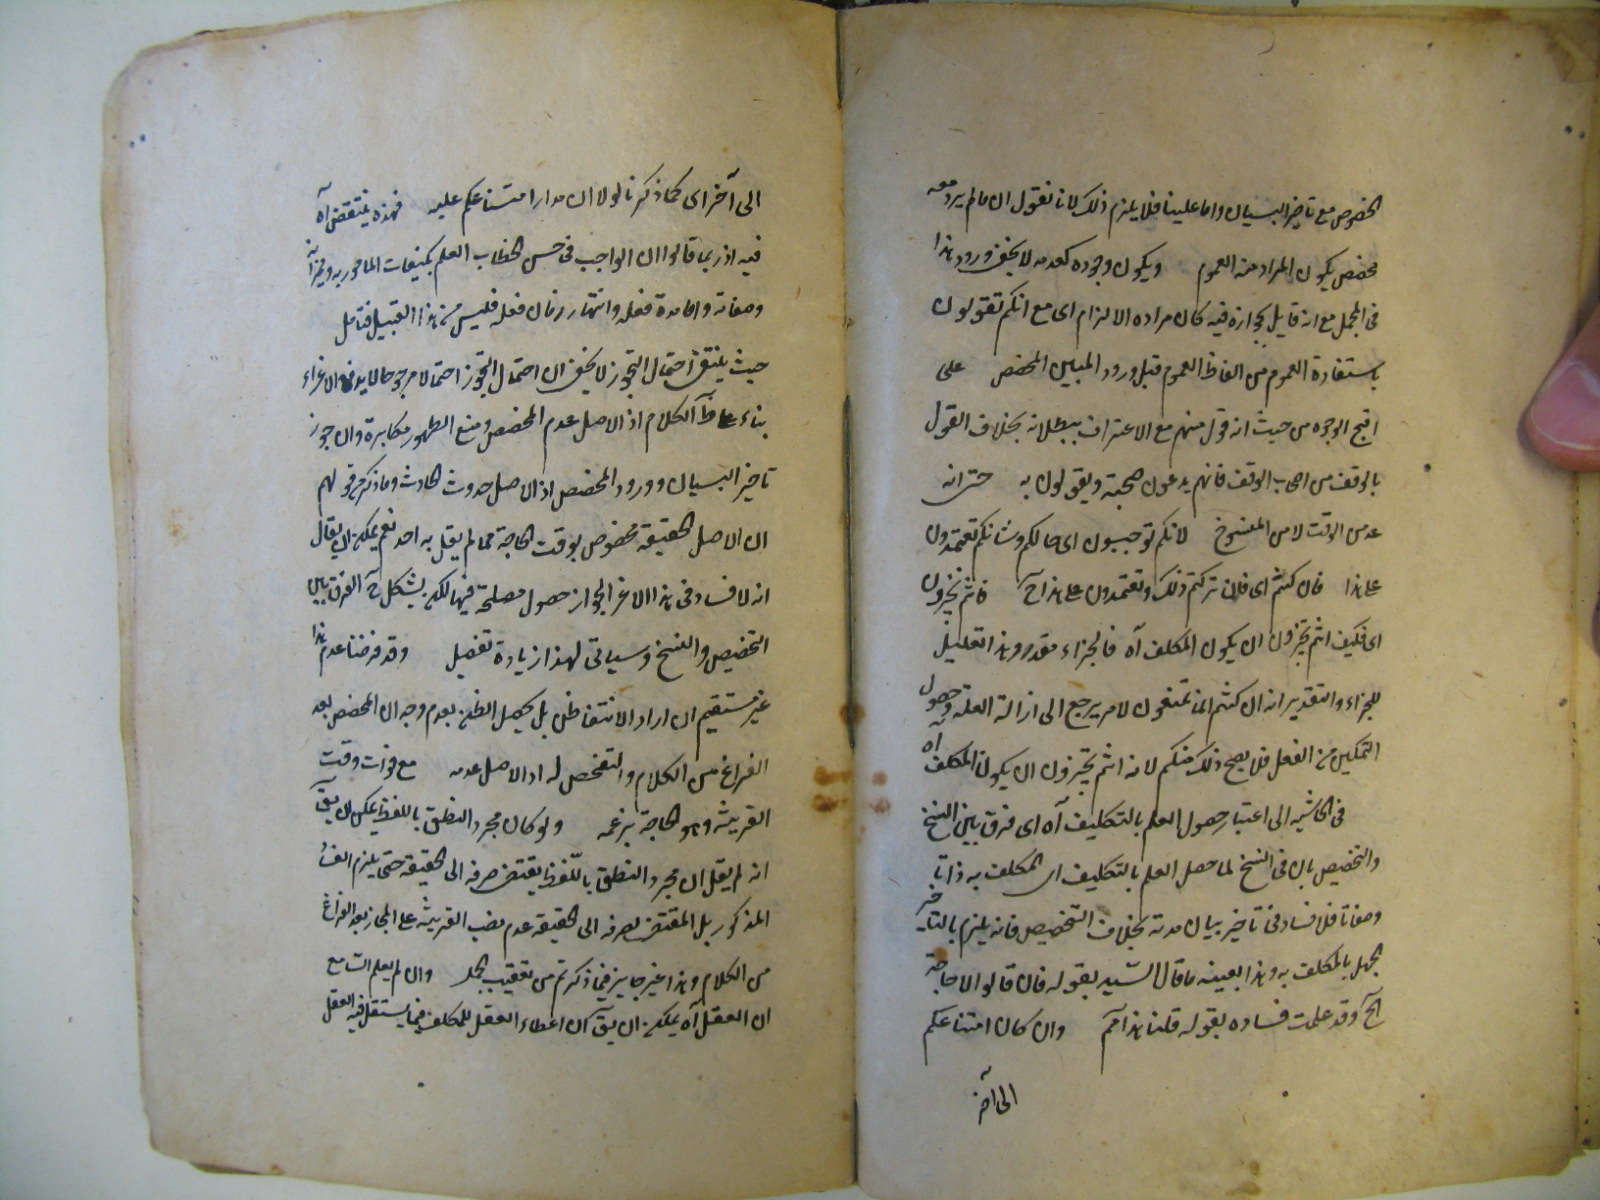 الخصوص مع تاخير البيان واما علينا فلا يلزم ذلك لانا نقول ان ما لم يرد معه
مخصص يكون المراد منه العموم ويكون وجوده كعدمه لا يخفى ورود هذا
فى المجمل مع انه قايل بجوازه فيه كان مراده الالزام اى مع انكم تقولون
باستفادة العموم من الفاظ العموم قبل ورود المبين المخصص على
اقبح الوجوه من حيث انه قول منهم مع الاعتراف ببطلانه بخلاف القول
بالوقف من اصحاب الوقف فانهم يدعون صحته ويقولون به حتى انه
عدمن الوقت لا من المنسوخ لانكم توجبون اى حالكم وشانكم تعتمدون
على هذا فان كنتم اى فان تركتم ذلك وتعتمدون على هذا آه فانتم تجيزون
اى فكيف انتم تجيزون ان يكون المكلف آه فالجزاء مقدر وهذا تعليل
للجزاء والتقدير انه ان كنتم انما تمنعون لامر يرجع الى ازالة العلة وحصول
التمكين من الفعل فلا يصح ذلك منكم لانه انتم تجيزون ان يكون المكلف آه
فى الحاشيه الى اعتبار حصول العلم بالتكليف آه اى فرق بين النسخ
والتخصيص بان فى النسخ لما حصل العلم بالتكليف اى المكلف به ذاتا
وصفاتا فلا فساد فى تاخير بيان مدته بخلاف التخصيص فانه يلزم بالتاخير
الجهل بالمكلف به وهذا بعينه ما قال السيد بقوله فان قالوا لا حاجة
آلخ وقد علمت فساده بقوله قلنا هذا وان كان امتناعكم
الى آخر
الى آخر اى كما ذكرنا لو لا ان مدار امتناعكم عليه فهذه ينتقض آه
فيه اذ ربما قالوا ان الواجب فى حسن الخطاب العلم بكيفيات المامور به
وصفاته واما مدة فعله وانتهاء زمان فعله فليس من هذا القبيل فتامل
حيث ينتفى احتمال التجوز لا يخفى ان احتمال التجوز احتمالا مرجوحا لا يدفع الاغراء
بناء على الكلام اذ الاصل عدم المخصص ومنع الظهور مكابرة وان جوز
تاخير البيان وورود المخصص اذ الاصل حدوث الحادث وما ذكر من قولهم
ان الاصل الحقيقة مخصوص بوقت الحاجة مما لم يقل به احد نعم يمكن ان يقال
انه لا فساد فى هذا الاغراء لجواز حصول مصلحة فيها لكن يشكل ح الفرق بين
التخصيص والنسخ وسياتى لهذا زيادة تفصيل وقد فرضنا عدم هذا
غير مستقيم ان اراد الانتفاء ظن بل يحصل الظن بعدم وجدان المخصص بعد
الفراغ من الكلام والتفحص له اذ الاصل عدمه مع فوات وقت
القرينة وهو الحاجة بزعمه ولو كان مجرد النطق باللفظ يمكن ان يق
انه لم يقل ان مجرد النطق باللفظ يقتضى صرفه الى الحقيقة حتى يلزم
المذكور بل المقتضى لصرفه الى الحقيقة عدم نصب القرينة على المجاز بعد الفراغ
من الكلام وهذا غير جايز فيما ذكرتم من تعقيب الجمل وان لم يعلم السامع
ان العقل آه يمكن ان يق ان اعطاء العقل للمكلف فيما يستقل فيه العقل